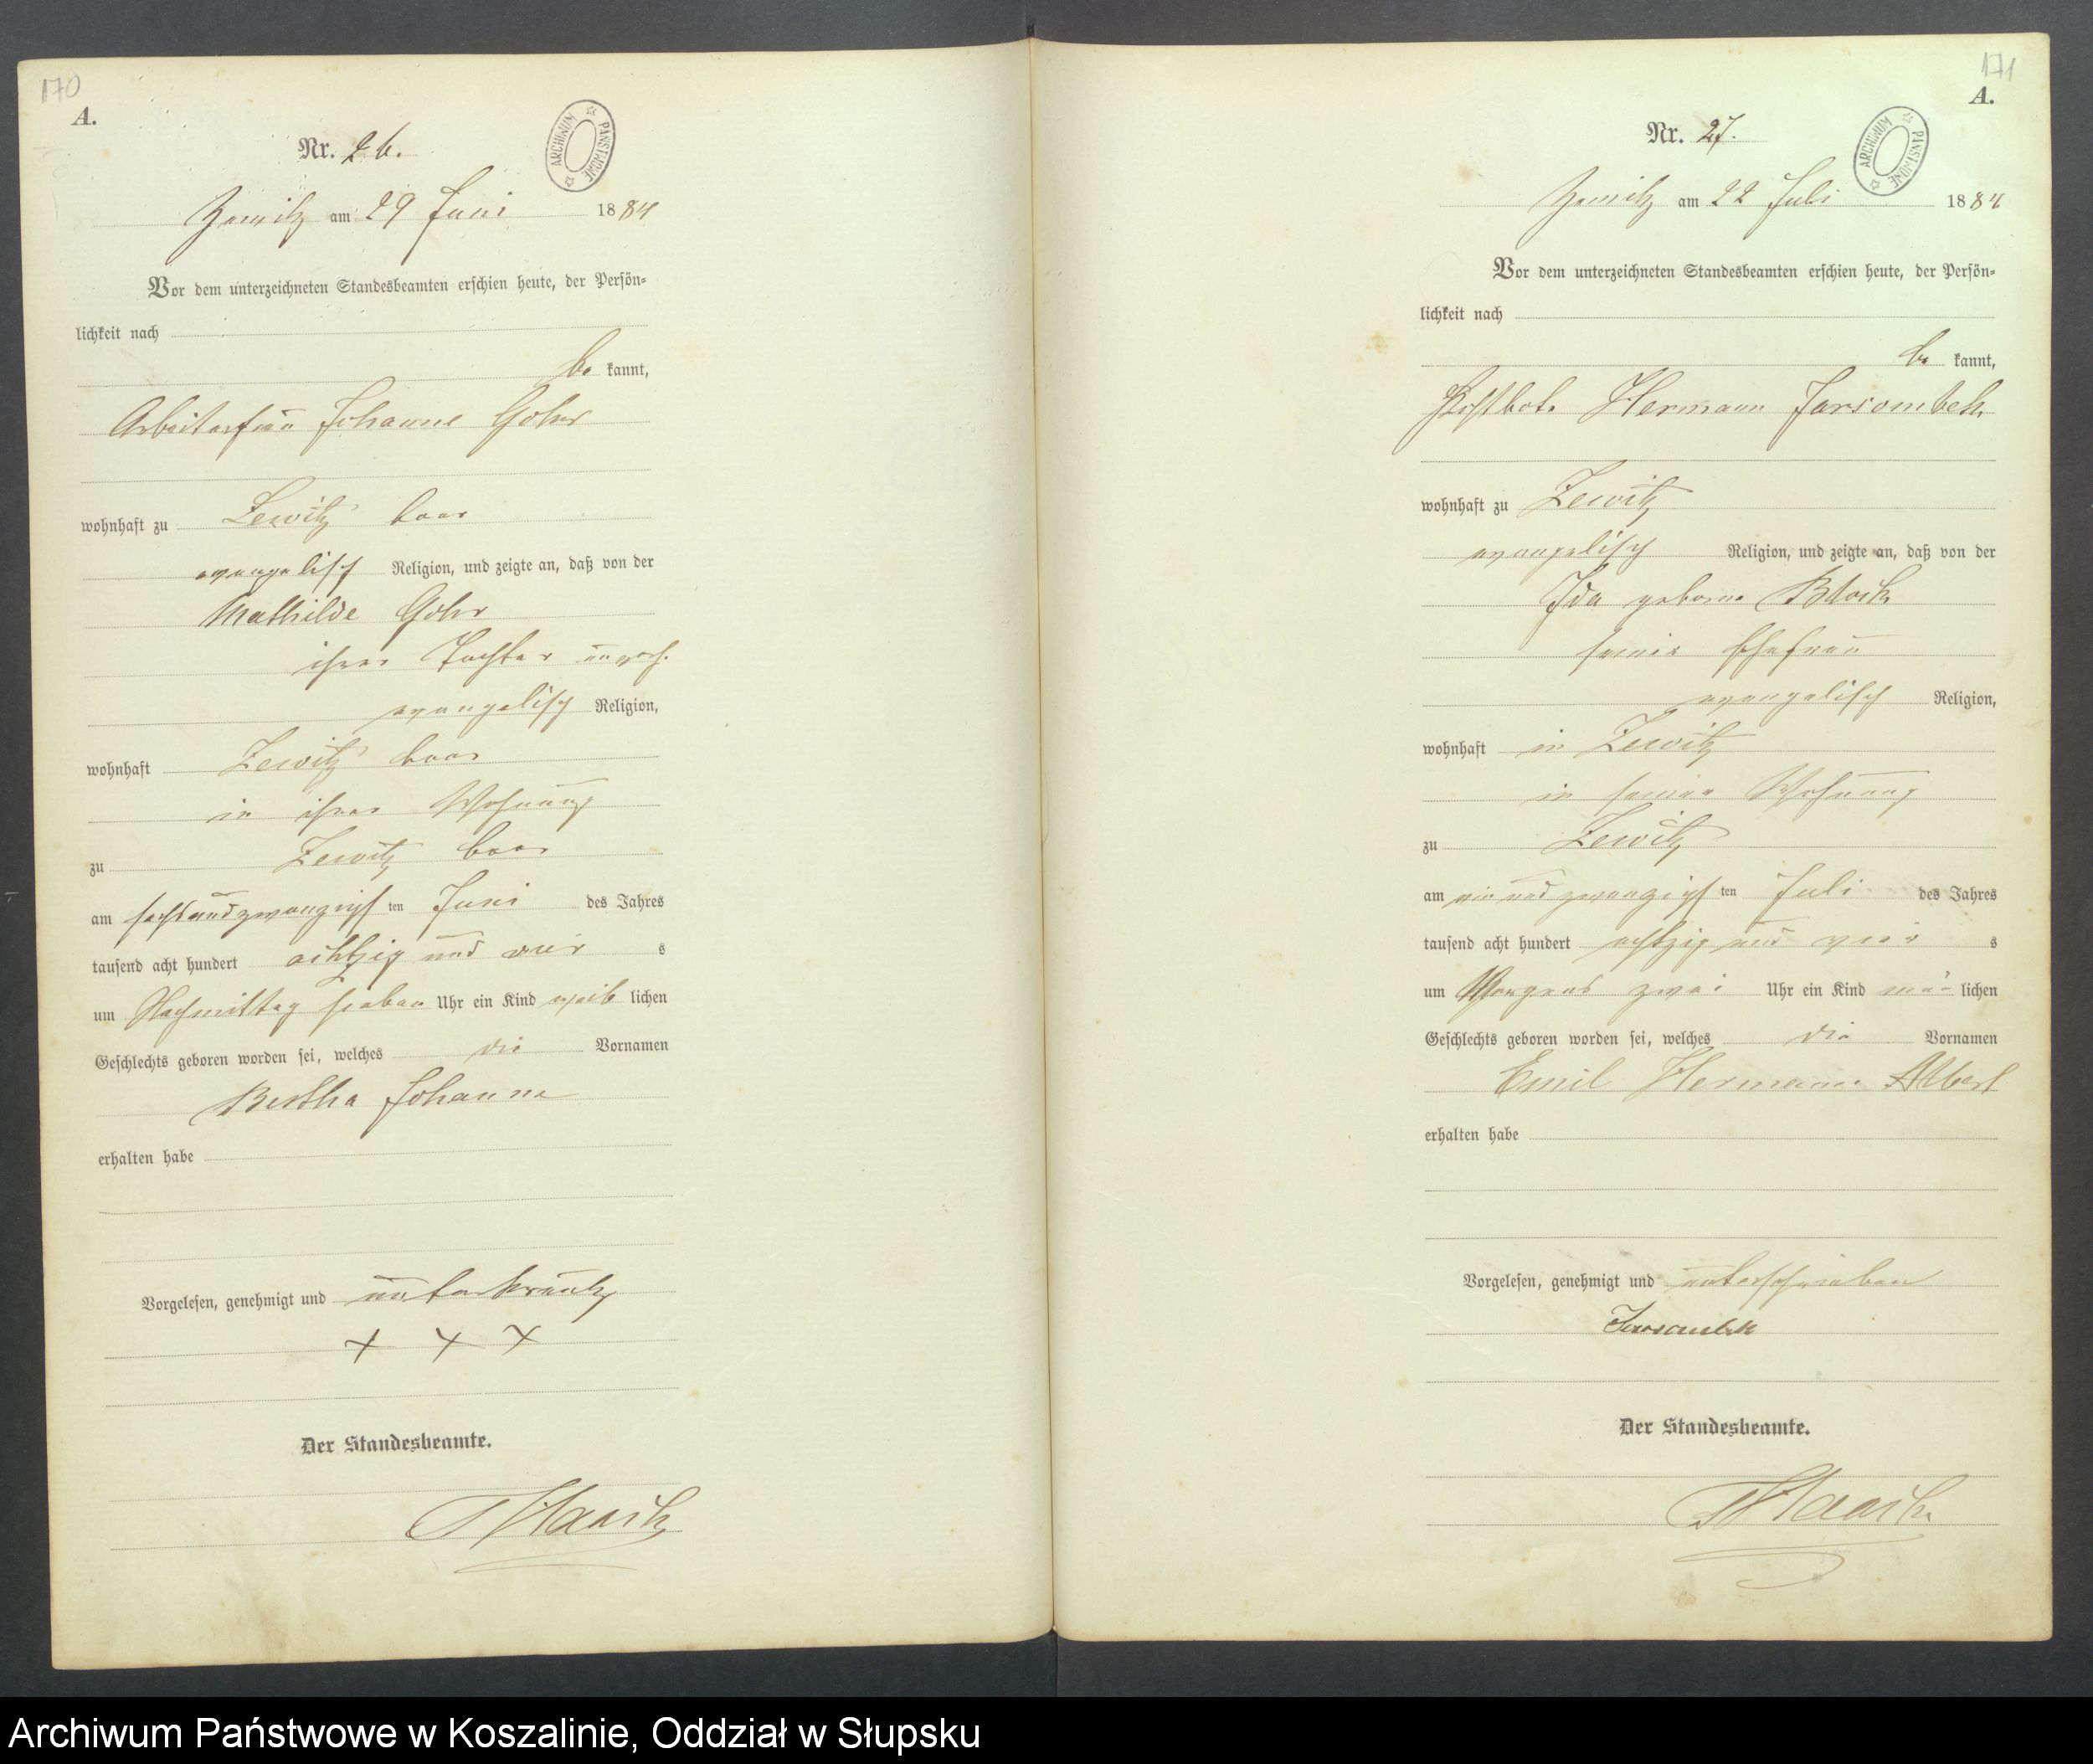 170
A.
Nr. 26.
ARCHIWUM PAŃSTWOWE
Zewitz am 29 Juni 1884
Vor dem unterzeichneten Standesbeamten erschien heute, der Persön-
lichkeit nach
be kannt,
Arbeiterfrau Johanne Gohr
wohnhaft zu Zewitz
evangelisch Religion, und zeigte an, daß von der
Mathilde Gohr
ihrer Tochter
evangelisch Religion,
wohnhaft Zewitz
in ihrer Wohnung
zu Zewitz
am sechsundzwanzigsten Juni des Jahres
tausend acht hundert achtzig und vier s
um Nachmittag sieben Uhr ein Kind weib lichen
Geschlechts geboren worden sei, welches die Vornamen
Bertha Johanne
erhalten habe
Vorgelesen, genehmigt und unterkreutz
+ + +
Der Standesbeamte.
171
A.
Nr. 27.
ARCHIWUM PAŃSTWOWE
Zewitz am 22 Juli 1884
Vor dem unterzeichneten Standesbeamten erschien heute, der Persön-
lichkeit nach
be kannt,
Postbote Hermann Jarsombek
wohnhaft zu Zewitz
evangelisch Religion, und zeigte an, daß von der
Ida geborne Block
seiner Ehefrau
evangelisch Religion,
wohnhaft in Zewitz
in seiner Wohnung
zu Zewitz
am ein und zwanzigsten Juli des Jahres
tausend acht hundert achtzig und vier s
um Morgens zwei Uhr ein Kind män lichen
Geschlechts geboren worden sei, welches die Vornamen
Emil Hermann Albert
erhalten habe
Vorgelesen, genehmigt und unterschrieben
Jarsombek
Der Standesbeamte.
Archiwum Państwowe w Koszalinie, Oddział w Słupsku